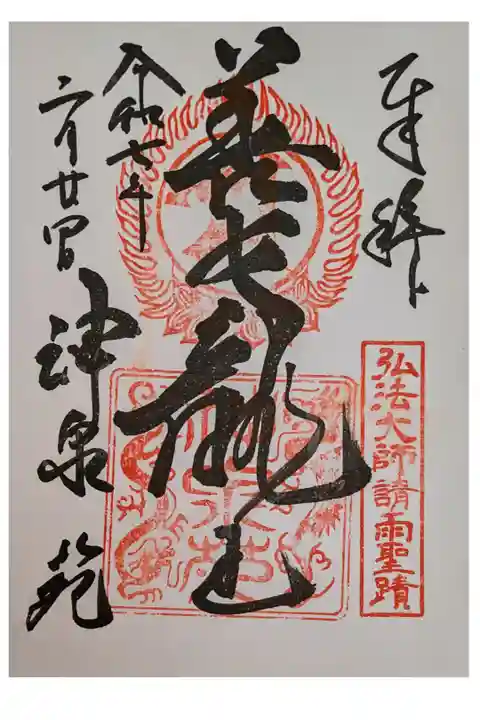 奉拝
弘法大師請雨聖蹟
善女龍王
令和七年
六月廿四日
神泉苑